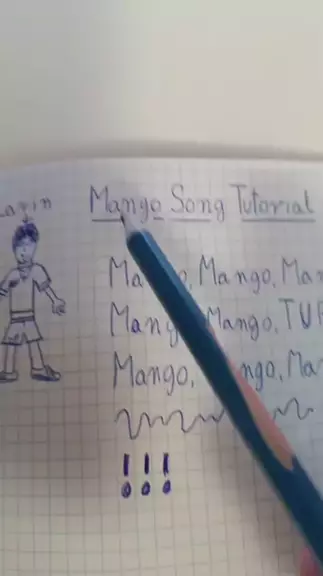 Mango Song Tutorial
Mango, Mango, Man
Mango, Mango, TUR
Mango, Mango, Ma
!!!